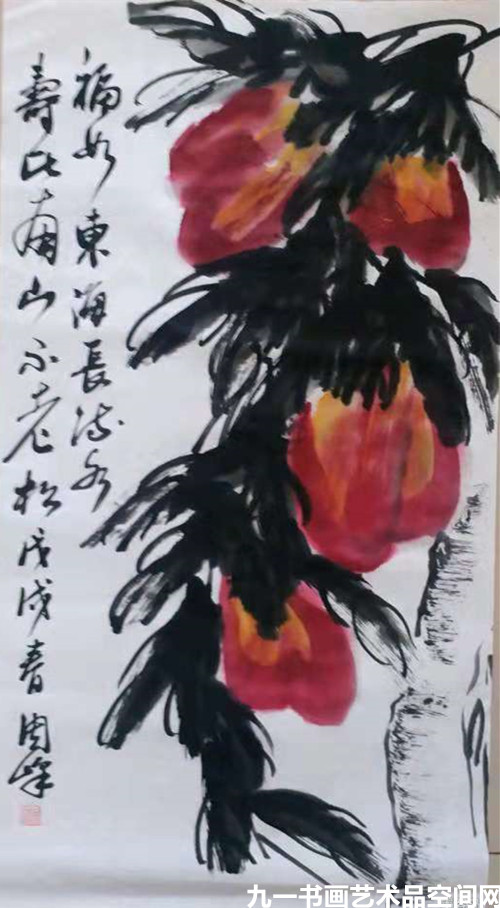 福如東海長流水
壽比南山不老松戊戌春周峰
九一书画艺术品空间网